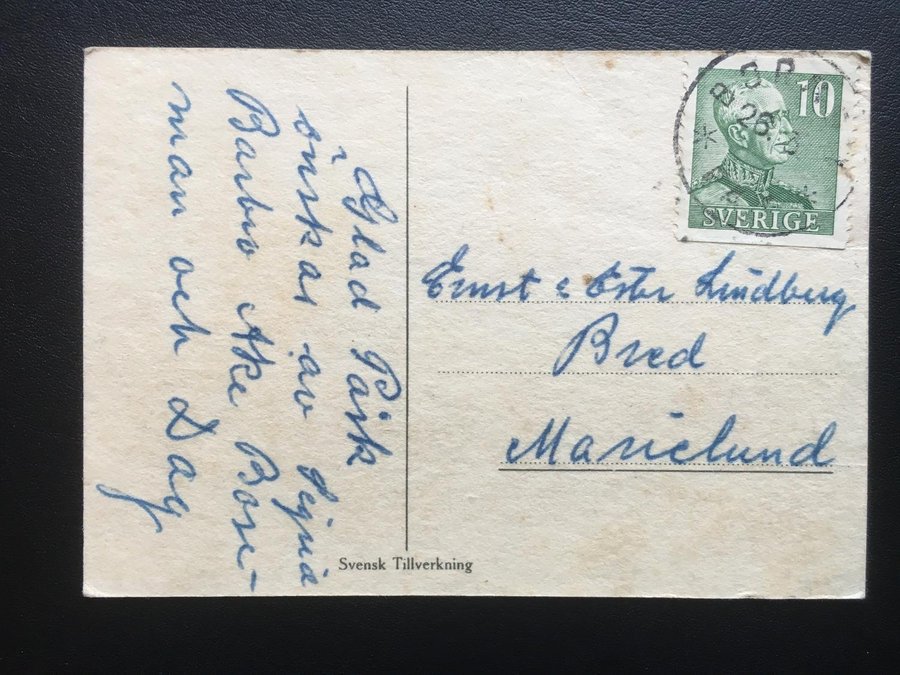 Glad Påsk
önskas av Signe
Barbro Åke Bose-
man och Dag
Svensk Tillverkning
10
SVERIGE
26
Ernst & Ester Lindberg
Bred
Marielund